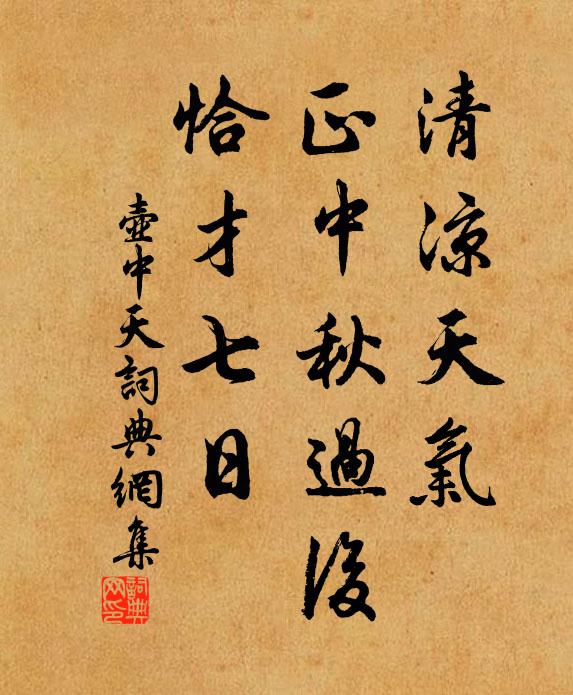 清凉天氣
正中秋過後
恰才七日
壺中天詞典網集
詞典網印